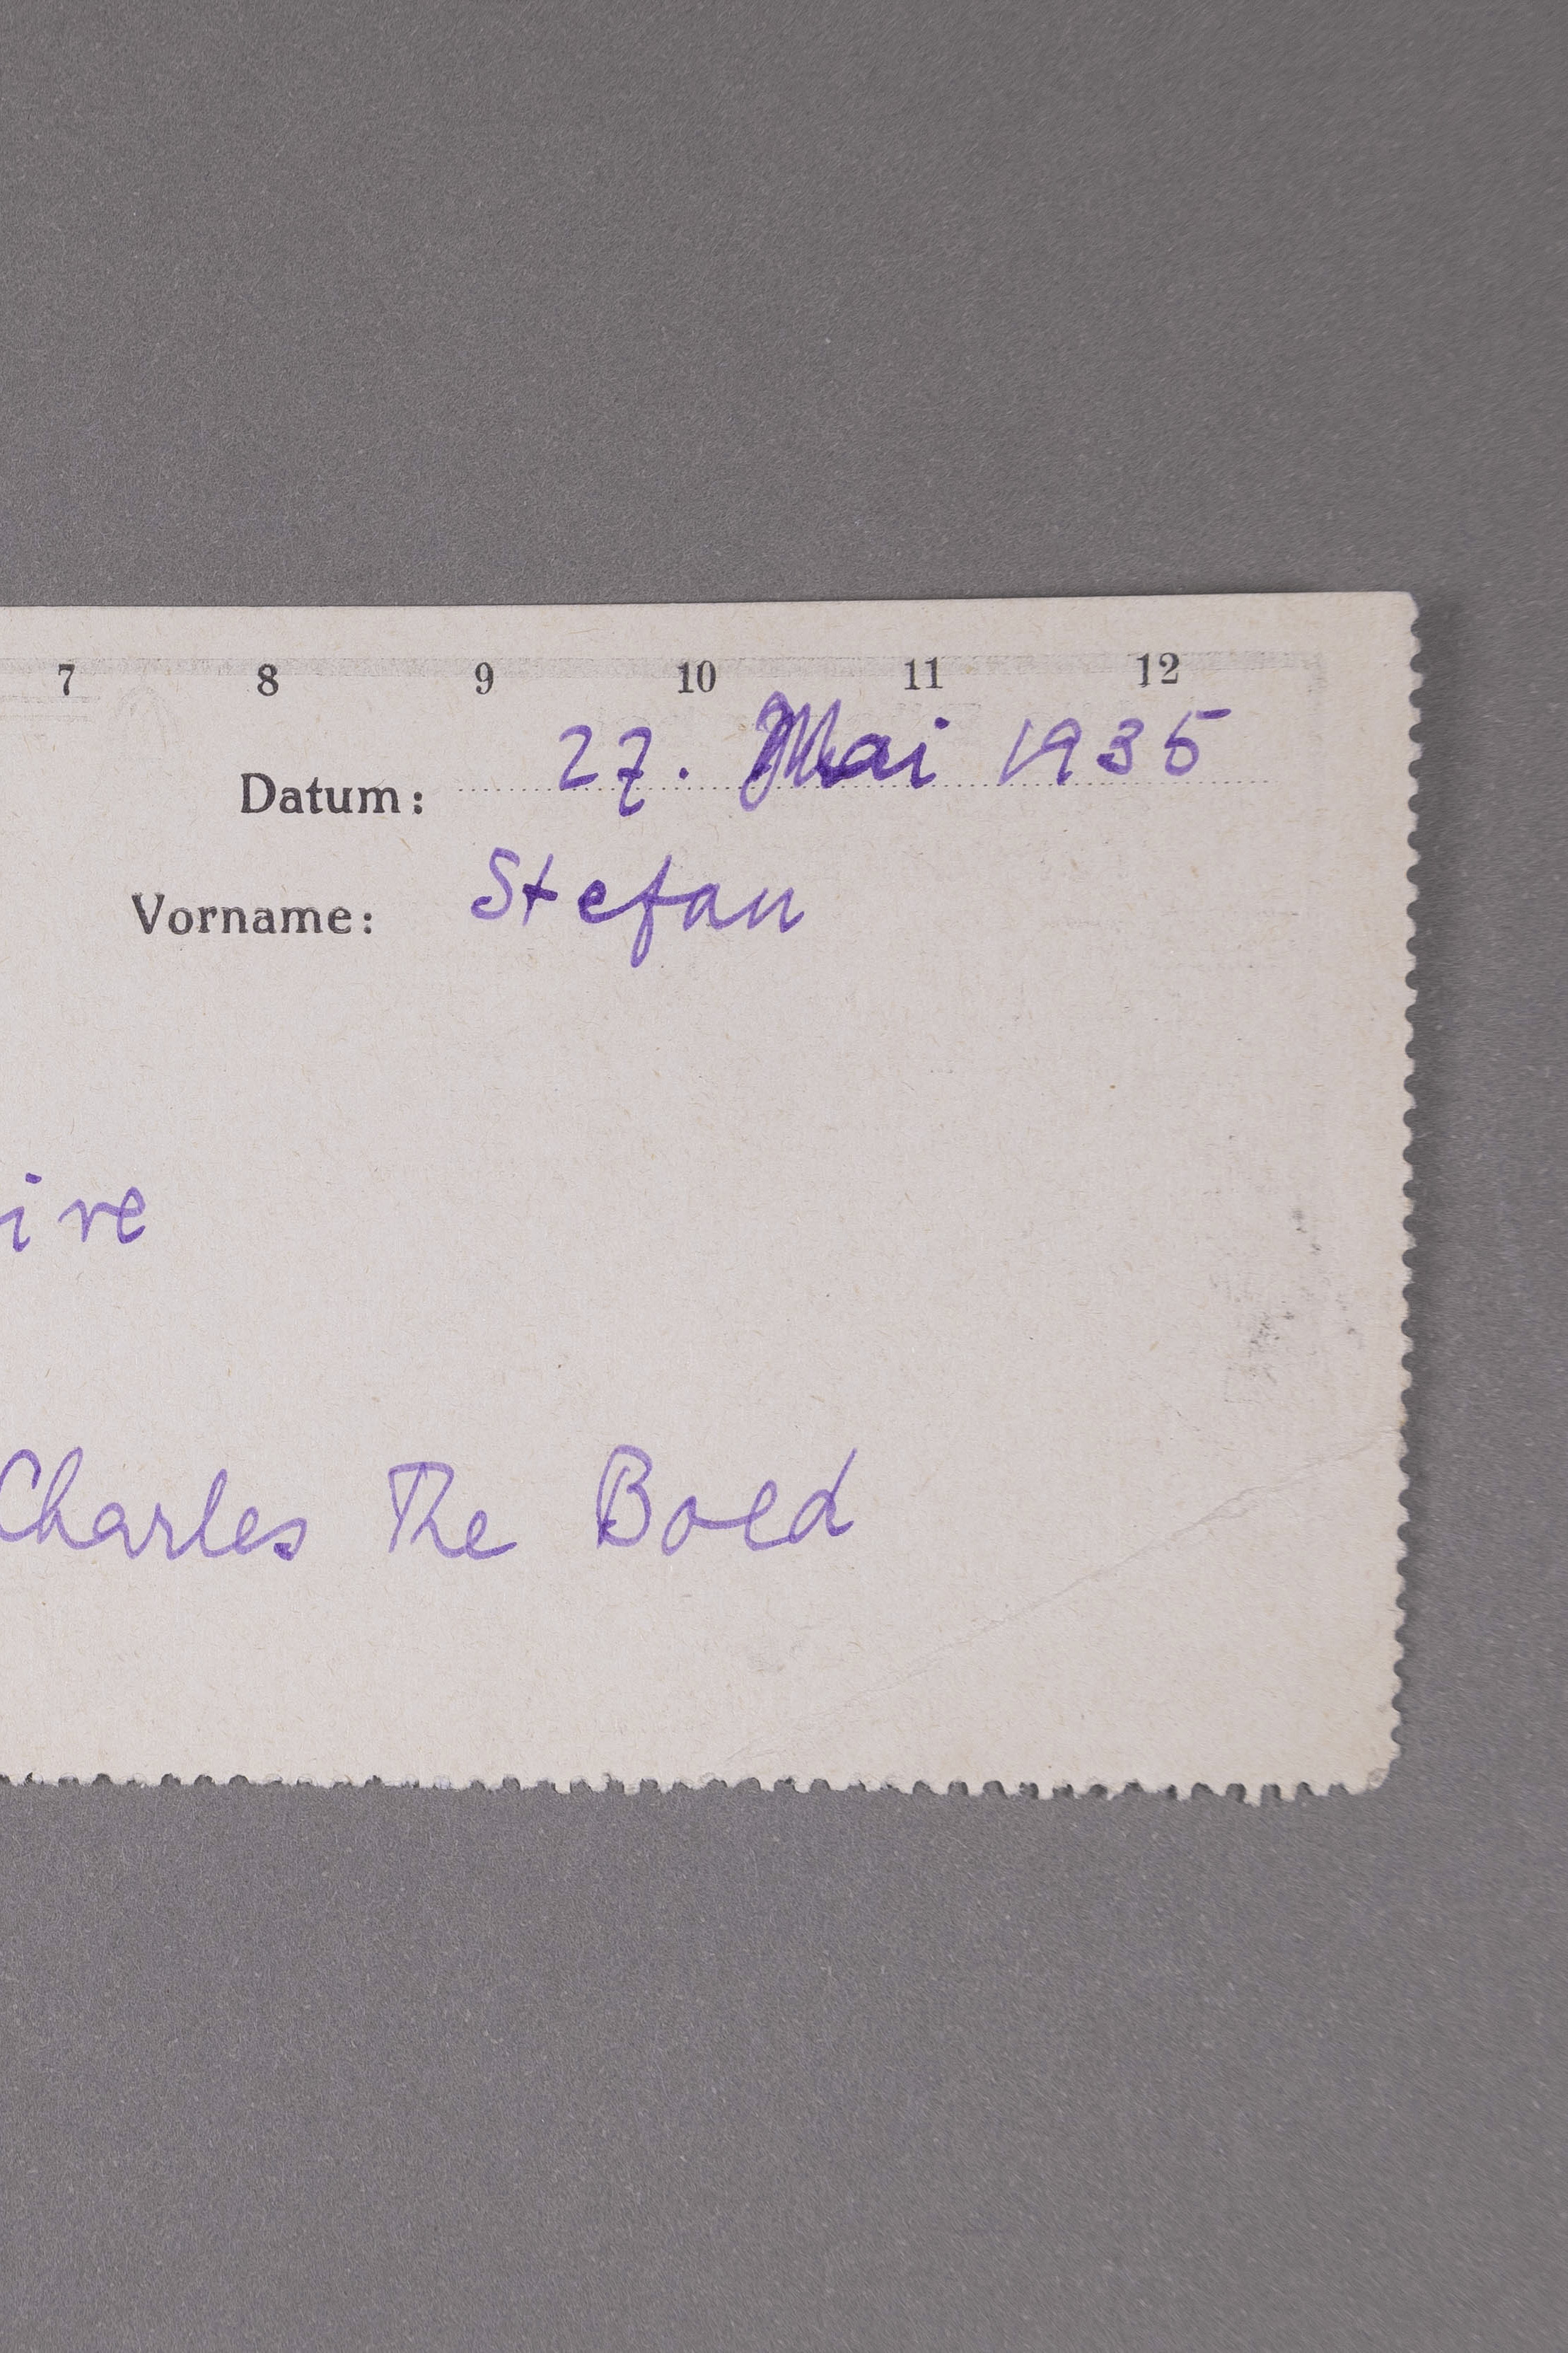 7 8 9 10 11 12
Datum: 27. Mai 1935
Vorname: Stefan
ire
Charles The Bold